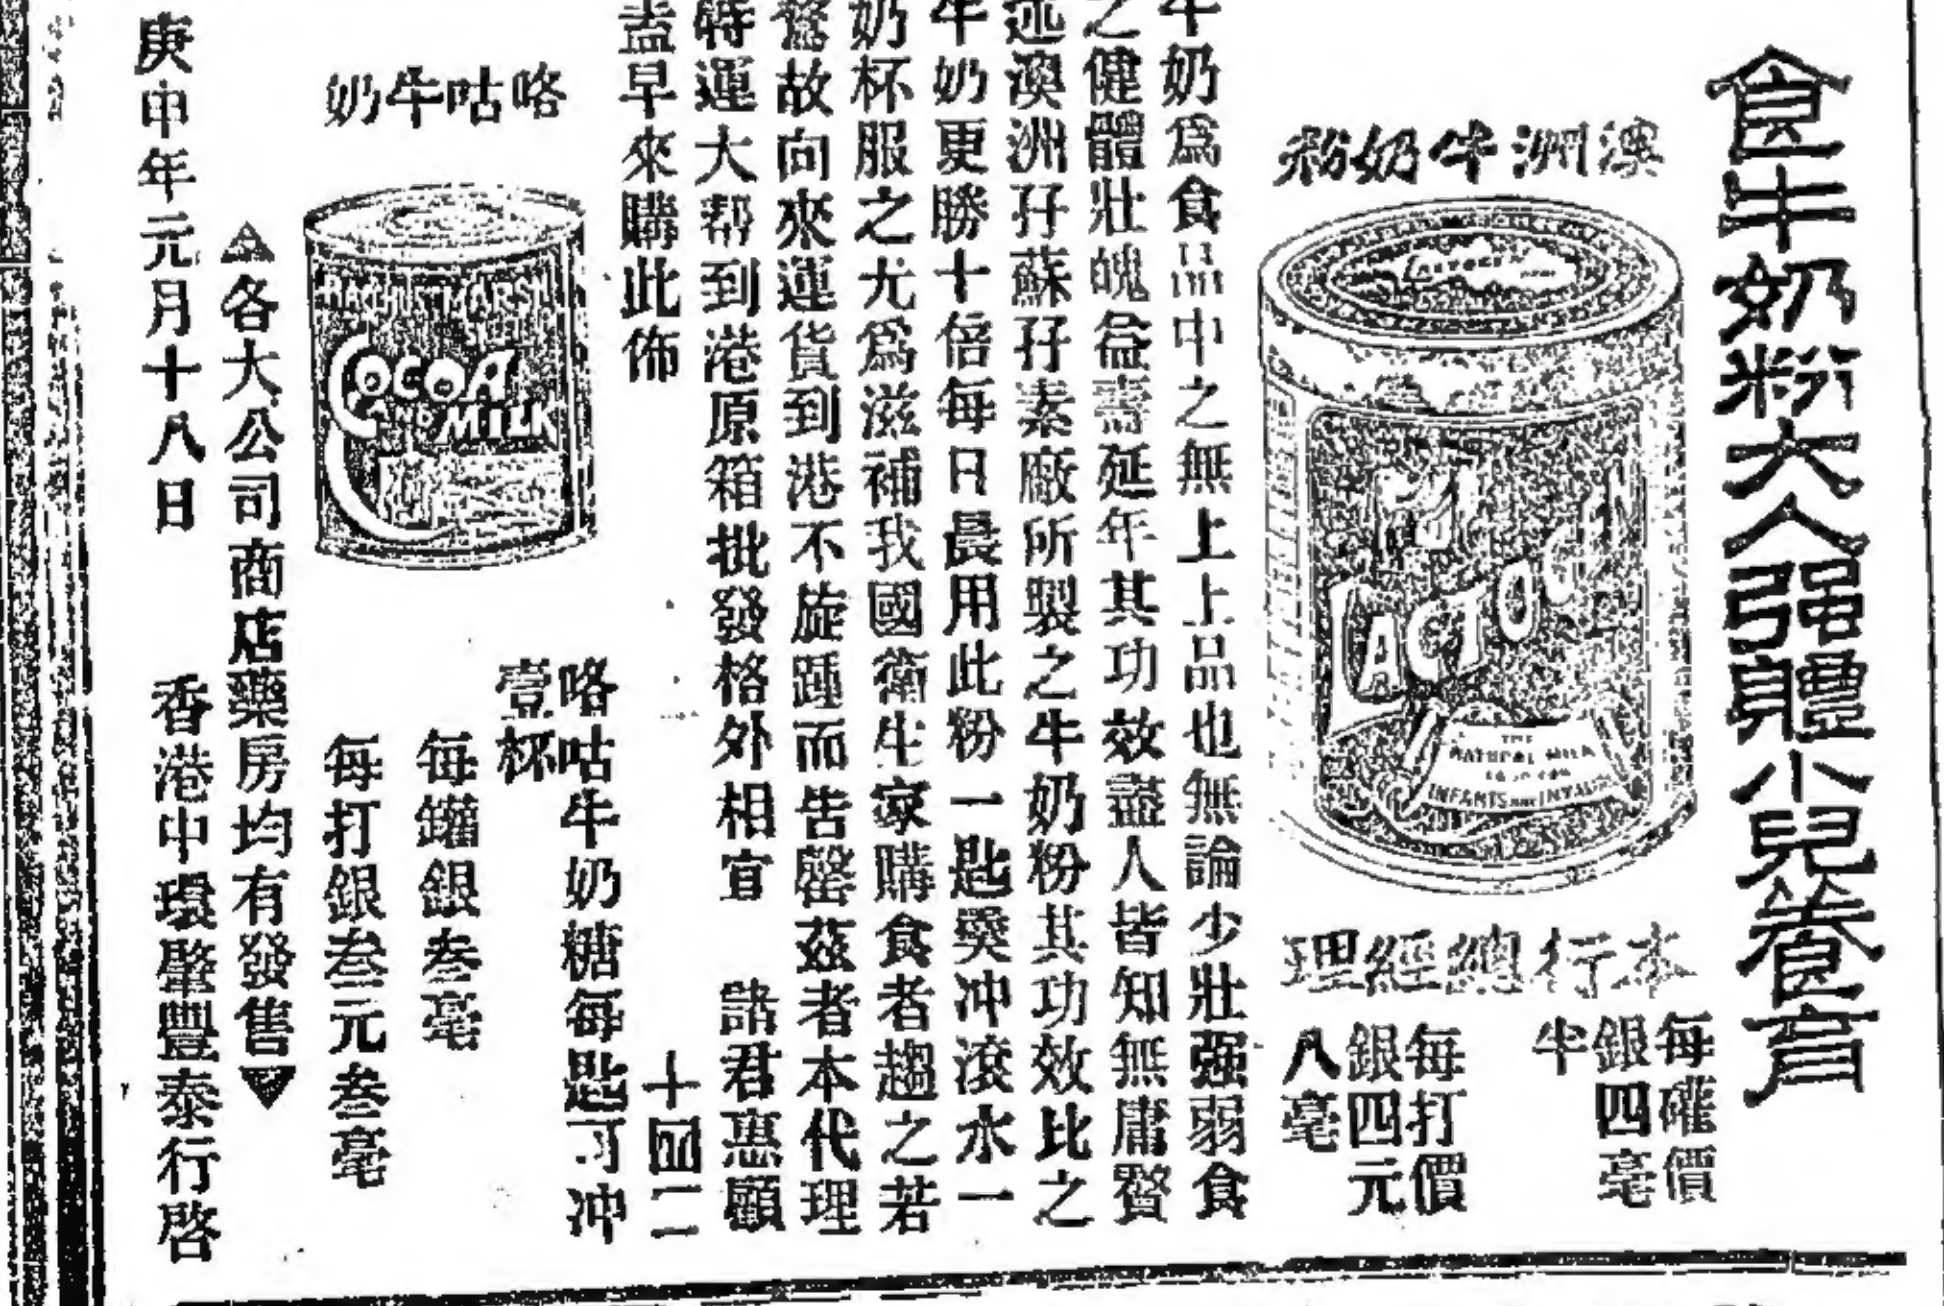 食牛奶粉大人强體小兒養育
澳洲牛奶粉
LACTOGEN
THE
NATURAL MILK
FOOD FOR
INFANTS AND INVALIDS
本行總經理
每礶價
銀四毫
半
每打價
銀四元
八毫
牛奶爲食品中之無上上品也無論少壯强弱食
之健體壯魄益壽延年其功效盡人皆知無庸贅
述澳洲孖蘇孖素廠所製之牛奶粉其功效比之
牛奶更勝十倍每日晨用此粉一匙羮冲滾水一
奶杯服之尤爲滋補我國衛生家購食者趨之若
鶩故向來運貨到港不旋踵而告罄茲者本代理
特運大帮到港原箱批發格外相宜 諸君惠顧
盍早來購此佈
十四二
咯咕牛奶
COCOA
AND MILK
咯咕牛奶糖每匙可冲
壹杯
每罐銀叁毫
每打銀叁元叁毫
▲各大公司商店藥房均有發售▼
庚申年元月十八日 香港中環肇豐泰行啓